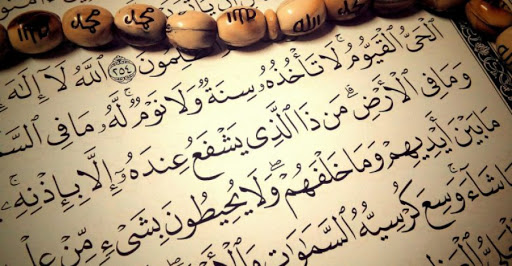 محمد محمد الله
ٱللَّهُ لَآ إِلَٰهَ ۝٢٥٤
ٱلْحَىُّ ٱلْقَيُّومُ ۚ لَا تَأْخُذُهُۥ سِنَةٌ وَلَا نَوْمٌ ۚ لَّهُۥ مَا فِى
وَمَا فِى ٱلْأَرْضِ ۗ مَن ذَا ٱلَّذِى يَشْفَعُ عِندَهُۥٓ إِلَّا بِإِذْنِهِۦ ۚ
مَا بَيْنَ أَيْدِيهِمْ وَمَا خَلْفَهُمْ ۖ وَلَا يُحِيطُونَ بِشَىْءٍ مِّنْ
شَآءَ ۚ وَسِعَ كُرْسِيُّهُ ٱلسَّمَٰوَٰتِ